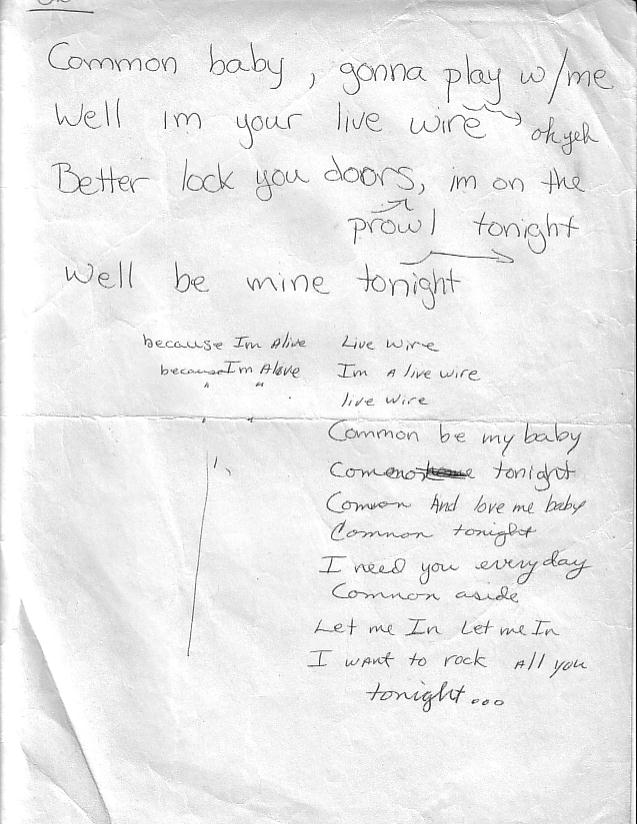 Common baby, gonna play w/me
Well im your live wire oh yeh
Better lock you doors, im on the
prowl tonight
Well be mine tonight
because Im Alive Live wire
because Im Alove Im A live wire
live wire
Common be my baby
tonight
Common And love me baby
Common tonight
I need you everyday
Common aside
Let me In Let me In
I want to rock All you
tonight...